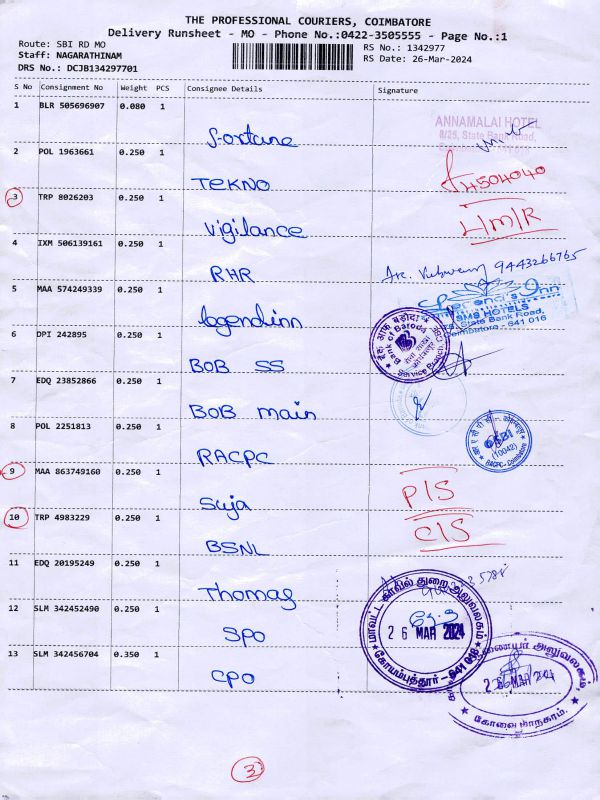 THE PROFESSIONAL COURIERS, COIMBATORE
Delivery Runsheet - MO - Phone No.:0422-3505555 - Page No.:1
Route: SBI RD MO
Staff: NAGARATHINAM
DRS No.: DCJB134297701
RS No.: 1342977
RS Date: 26-Mar-2024
S No Consignment No Weight PCS Consignee Details Signature
1 BLR 505696907 0.080 1
ANNAMALAI HOTEL
8/25, State Bank Road,
fortune
2 POL 1963661 0.250 1
4504040
TEKNO
3 TRP 8026203 0.250 1
L/M/R
Vigilance
4 IXM 506139161 0.250 1
9443266765
RHR
5 MAA 574249339 0.250 1
SMS HOTELS
State Bank Road,
Coimbatore - 641 018
legendinn
6 DPI 242895 0.250 1
Bank of Baroda
Service Branch
BOB SS
7 EDQ 23852866 0.250 1
BOB main
8 POL 2251813 0.250 1
SBI
(10042)
RACPC - Coimbatore
RACPC
9 MAA 863749160 0.250 1
P/S
Suja
10 TRP 4983229 0.250 1
C/S
BSNL
11 EDQ 20195249 0.250 1
Thomas
12 SLM 342452490 0.250 1
மாவட்ட காவல் துறை அலுவலகம்
26 MAR 2024
கோயம்புத்தூர் - 641 018
SPO
13 SLM 342456704 0.350 1
கோவை மாநகரம்.
CPO
3